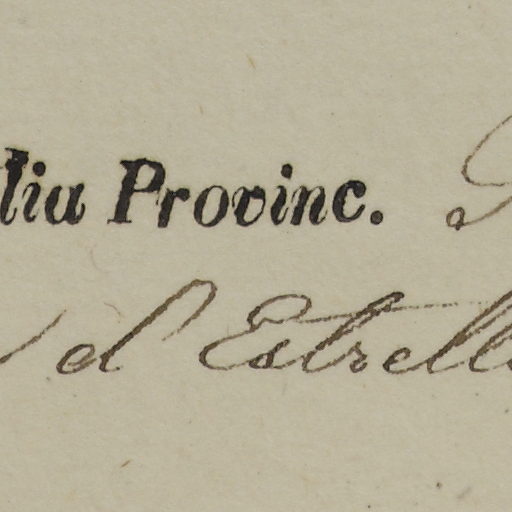 lia Provinc.
d'Estrell